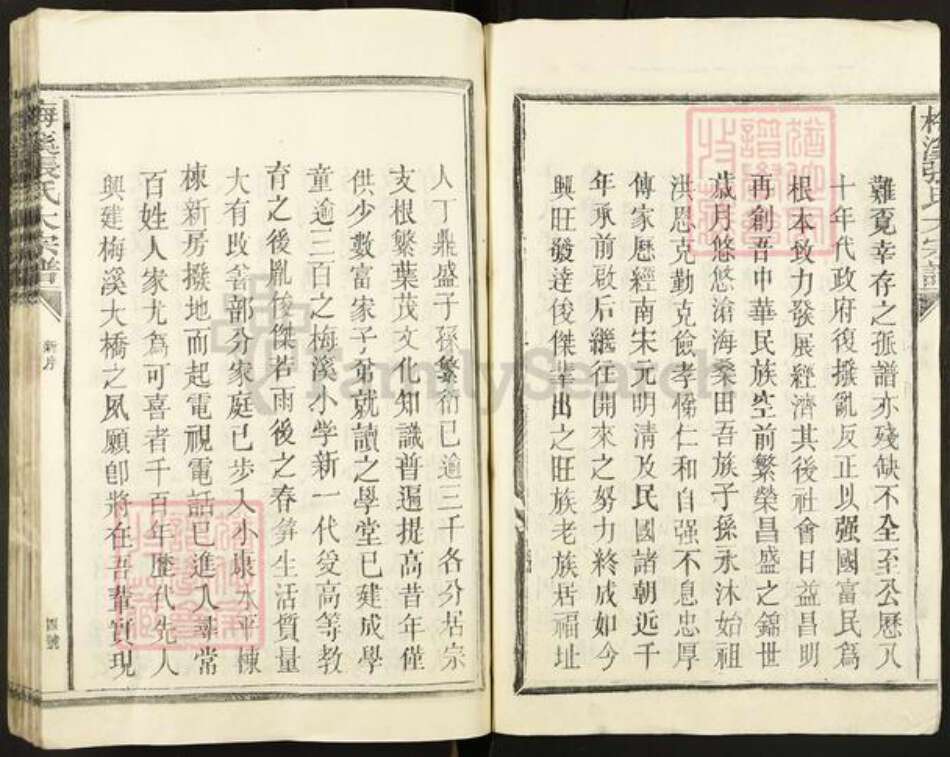 難覓幸存之孤譜亦殘缺不全至公歷八
十年代政府復撥亂反正以强國富民為
根本致力發展經濟其後社會日益昌明
再創吾中華民族空前繁榮昌盛之錦世
歲月悠悠滄海桑田吾族子孫永沐始祖
洪恩克勤克儉孝悌仁和自强不息忠厚
傳家歷經南宋元明清及民國諸朝近千
年承前啟后繼往開來之努力終成如今
興旺發達俊傑輩出之旺族老族居福址
人丁鼎盛子孫繁衍已逾三千各分居宗
支根繁葉茂文化知識普遍提高昔年僅
供少數富家子弟就讀之學堂已建成學
童逾三百之梅溪小学新一代受高等教
育之後胤俊傑若雨後之春笋生活質量
大有改善部分家庭已步入小康水平棟
棟新房撥地而起電視電話已進入尋常
百姓人家尤為可喜者千百年歷代先人
興建梅溪大橋之夙願即將在吾輩實現
梅溪張氏大宗譜
新序
四號
FamilySearch